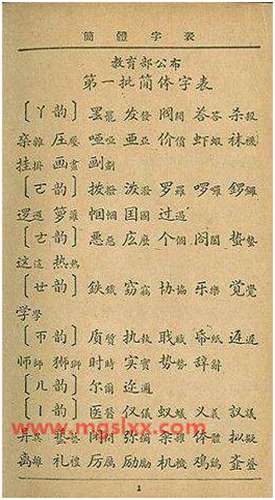 簡體字表
教育部公布
第一批简体字表
〔ㄚ韵〕 罢罷 发發 阀閥 荅答 杀殺
杂雜 压壓 哑啞 亚亞 价價 虾蝦 袜襪
挂掛 画畫 劃
〔ㄛ韵〕 拨撥 泼潑 罗羅 啰囉 锣鑼
逻邏 箩籮 帼幗 国國 过過
〔ㄜ韵〕 恶惡 庅麼 个個 阁閣 蛰蟄
这這 热熱
〔ㄝ韵〕 鉄鐵 窃竊 协協 乐樂 觉覺
学學
〔ㄭ韵〕 质質 执執 职職 迟遲
师師 狮獅 时時 实實 势勢 辞辭
〔ㄦ韵〕 尔爾 迩邇
〔ㄧ韵〕 医醫 仪儀 蚁蟻 义義 议議
艺藝 闭 弥彌 体體 拟擬
离離 礼禮 厉厲 励勵 机機 鸡鷄
www.mgslxx.com
1